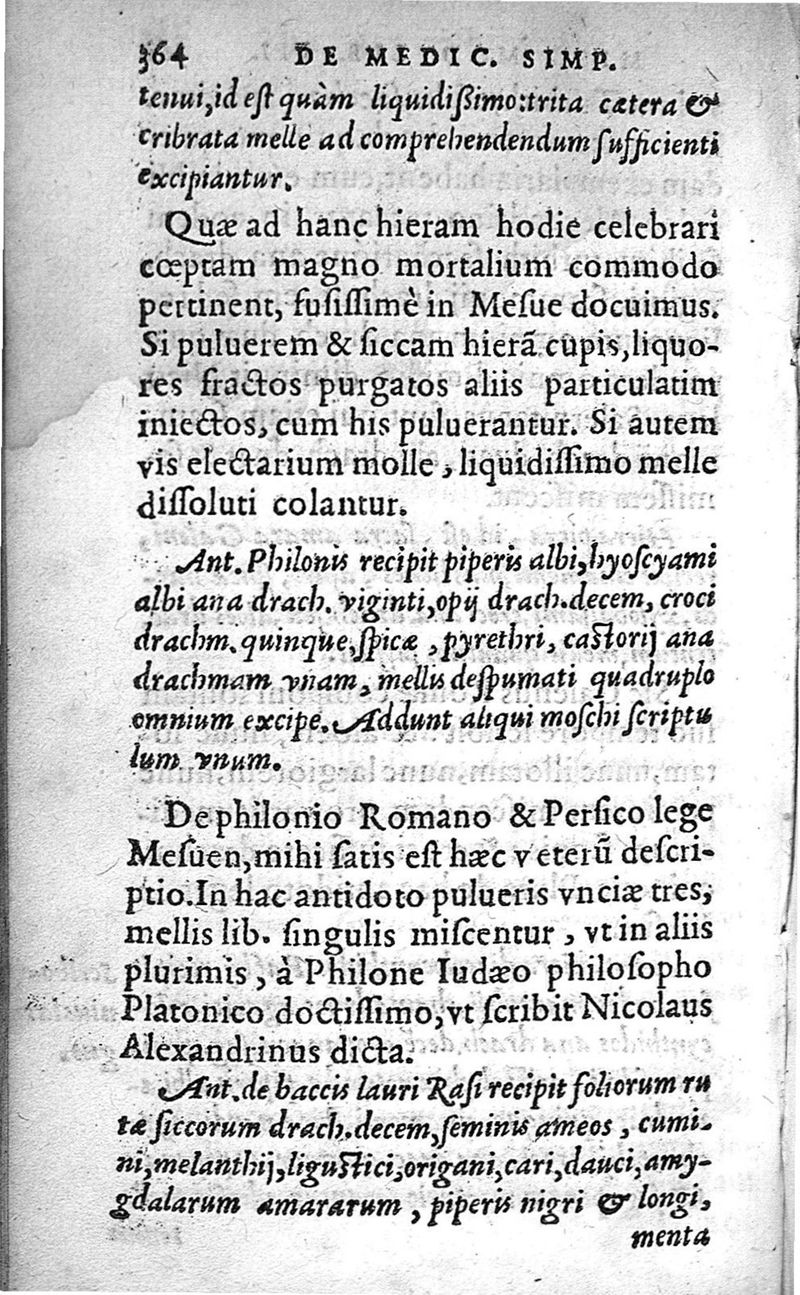 364 DE MEDIC. SIMP.
tenui,id eſt quàm liquidißimo:trita cætera &
cribrata melle ad comprehendendum ſufficienti
excipiantur.
Quæ ad hanc hieram hodie celebrari
cœptam magno mortalium commodo
pertinent, fuſiſſimè in Meſue docuimus.
Si puluerem & ſiccam hierã cupis,liquo-
res fractos purgatos aliis particulatim
iniectos, cum his puluerantur. Si autem
vis electarium molle, liquidiſſimo melle
diſſoluti colantur.
Ant. Philonis recipit piperis albi,hyoſcyami
albi ana drach. viginti,opij drach.decem, croci
drachm. quinque,ſpicæ, pyrethri, caſtorij ana
drachmam vnam, mellis deſpumati quadruplo
omnium excipe. Addunt aliqui moſchi ſcriptu
lum vnum.
De philonio Romano & Perſico lege
Meſuen,mihi ſatis eſt hæc veterũ deſcri-
ptio.In hac antidoto pulueris vnciæ tres,
mellis lib. ſingulis miſcentur, vt in aliis
plurimis, à Philone Iudæo philoſopho
Platonico doctiſſimo,vt ſcribit Nicolaus
Alexandrinus dicta.
Ant.de baccis lauri Raſi recipit foliorum ru
tæ ſiccorum drach.decem,ſeminis ameos, cumi-
ni,melanthij,liguſtici,origani,cari,dauci,amy-
gdalarum amararum, piperis nigri & longi,
menta